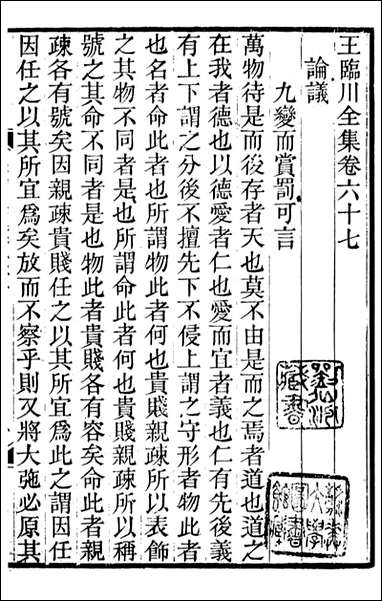 王臨川全集卷六十七
論議
九變而賞罰可言
萬物待是而後存者天也莫不由是而之焉者道也道之
在我者德也以德愛者仁也愛而宜者義也仁有先後義
有上下謂之分後不擅先下不侵上謂之守形者物此者
也名者命此者也所謂物此者何也貴賤親疎所以表飾
之其物不同者是也所謂命此者何也貴賤親疎所以稱
號之其命不同者是也物此者貴賤各有容矣命此者親
疎各有號矣因親疎貴賤任之以其所宜爲此之謂因任
因任之以其所宜爲矣放而不察乎則又將大弛必原其
藏書
大學
圖書